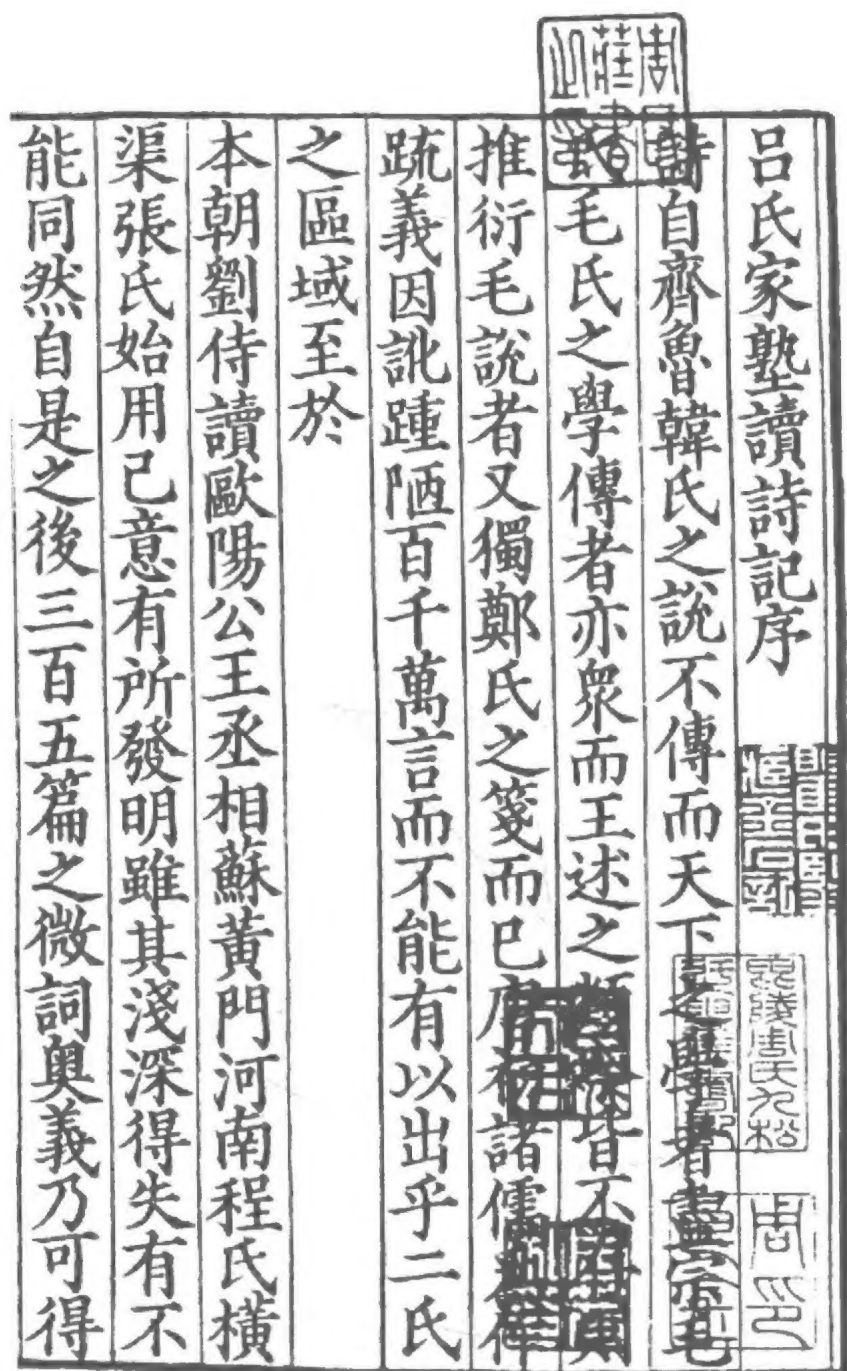 呂氏家塾讀詩記序
詩自齊魯韓氏之說不傳而天下之學者盡宗毛
氏毛氏之學傳者亦衆而王述之類皆不
推衍毛說者又獨鄭氏之箋而已唐初諸儒為作
疏義因訛踵陋百千萬言而不能有以出乎二氏
之區域至於
本朝劉侍讀歐陽公王丞相蘇黃門河南程氏橫
渠張氏始用己意有所發明雖其淺深得失有不
能同然自是之後三百五篇之微詞奥義乃可得
周氏藏書之印
毘陵周氏九松
周印